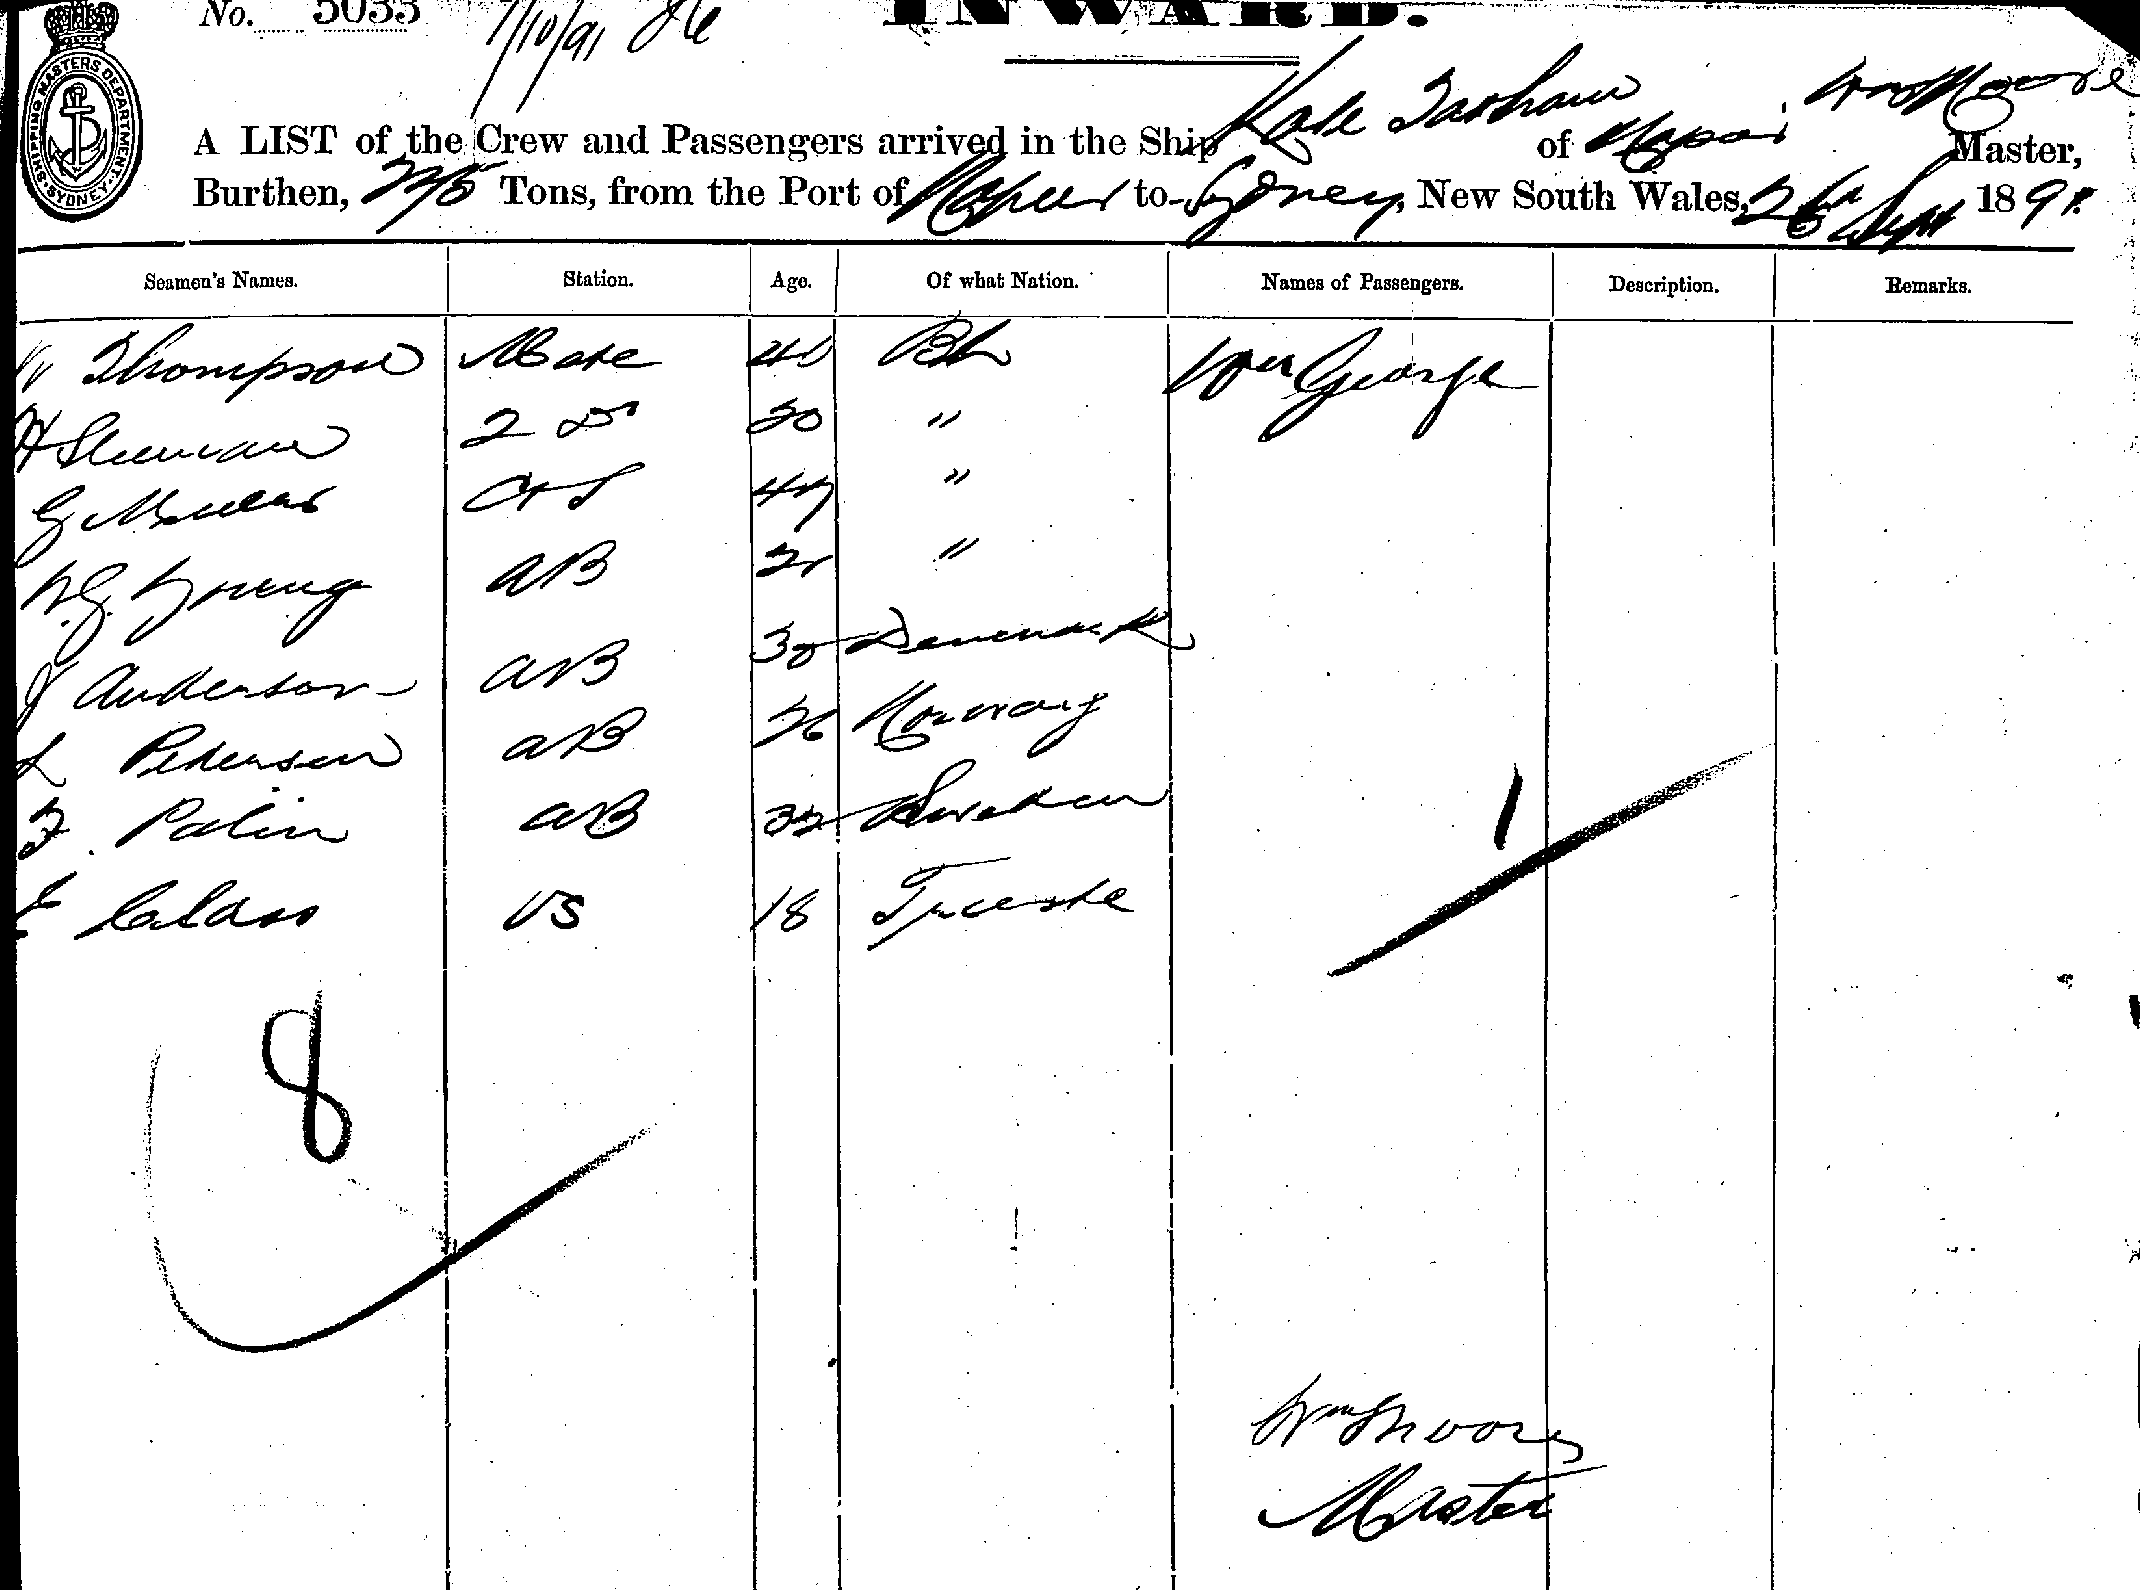 No. 5033 1/10/91
INWARD.
SHIPPING MASTERS DEPARTMENT. SYDNEY.
Kate Tatham Wm Moore
A LIST of the Crew and Passengers arrived in the Ship of Master,
Burthen, Tons, from the Port of Napier to Sydney, New South Wales, 26th Sept 1891.
Seamen's Names. Station. Age. Of what Nation. Names of Passengers. Description. Remarks.
W Thompson Mate 40 Bh Wm George
H 2 Do 20 "
G 47 "
W.G. Young AB 21 "
J Anderson AB 30 Denmark
L Pedersen AB 26 Norway
F. Palin AB 32 Sweden 1
E OS 18 Trieste
8
Wm Moore
Master